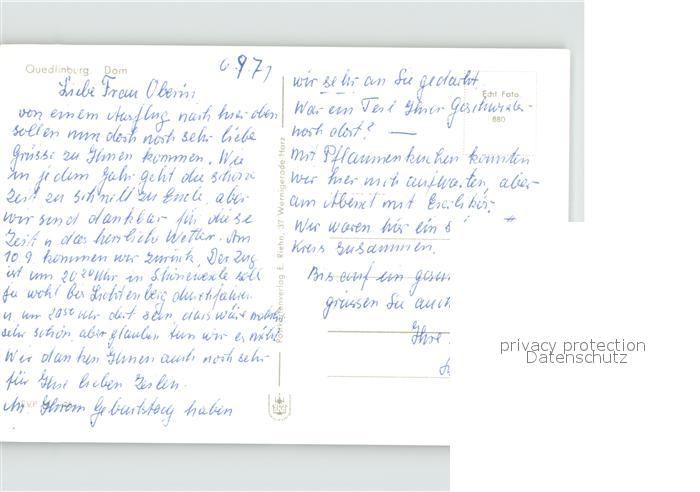 Quedlinburg. Dom
6.9.71
Liebe Frau Oberin
von einem Ausflug nach hier oben
sollen nun doch noch sehr liebe
Grüsse zu Ihnen kommen. Wie
in jedem Jahr geht die schöne
Zeit zu schnell zu Ende, aber
wir sind dankbar für diese
Zeit u das herrliche Wetter. Am
10 9 kommen wir zurück. Der Zug
ist um 20 20 Uhr in Schöneweide soll
ja wohl bis Lichtenberg durchfahren
u um 20 50 Uhr dort sein, das wäre
sehr schön, aber glauben tun wir es nicht
Wir danken Ihnen auch noch sehr
für Ihre lieben Zeilen.
An Ihrem Geburtstag haben
wir sehr an Sie gedacht
War ein Teil Ihrer Geschwister
noch dort? —
Mit Pflaumenkuchen konnten
wir hier nicht aufwarten, aber
am Abend mit
Wir waren hier ein
Kreis zusammen.
Bis auf ein
grüssen Sie auch
Ihre
Echt Foto
680
Verlag E. Riehn, 37 Wernigerode-Harz
privacy protection
Datenschutz